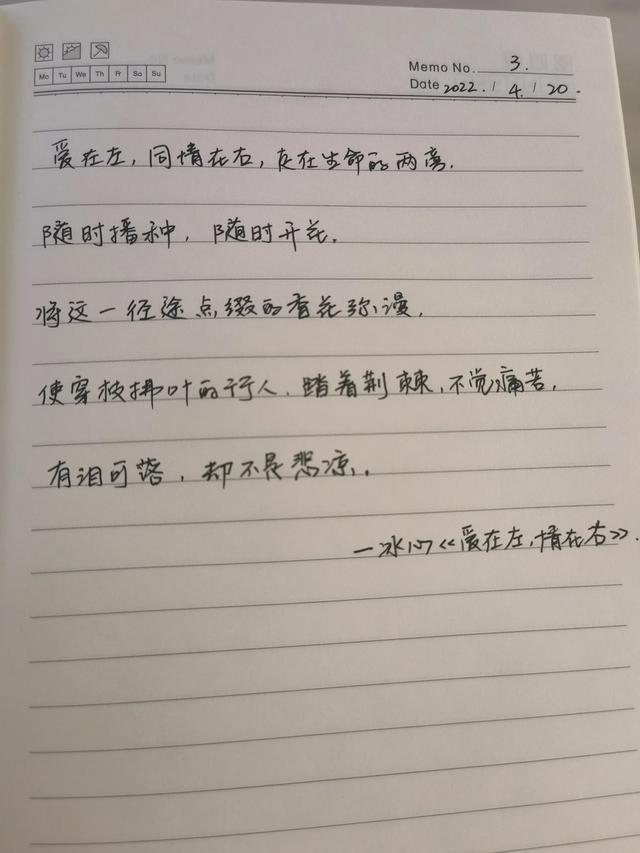 Memo No. 3.
Mo Tu We Th Fr Sa Su
Date 2022. / 4. / 20.
爱在左，同情在右，走在生命的两旁，
随时播种，随时开花，
将这一径途点缀的香花弥漫，
使穿枝拂叶的行人，踏着荆棘，不觉痛苦，
有泪可落，却不是悲凉。
—冰心《爱在左，情在右》.